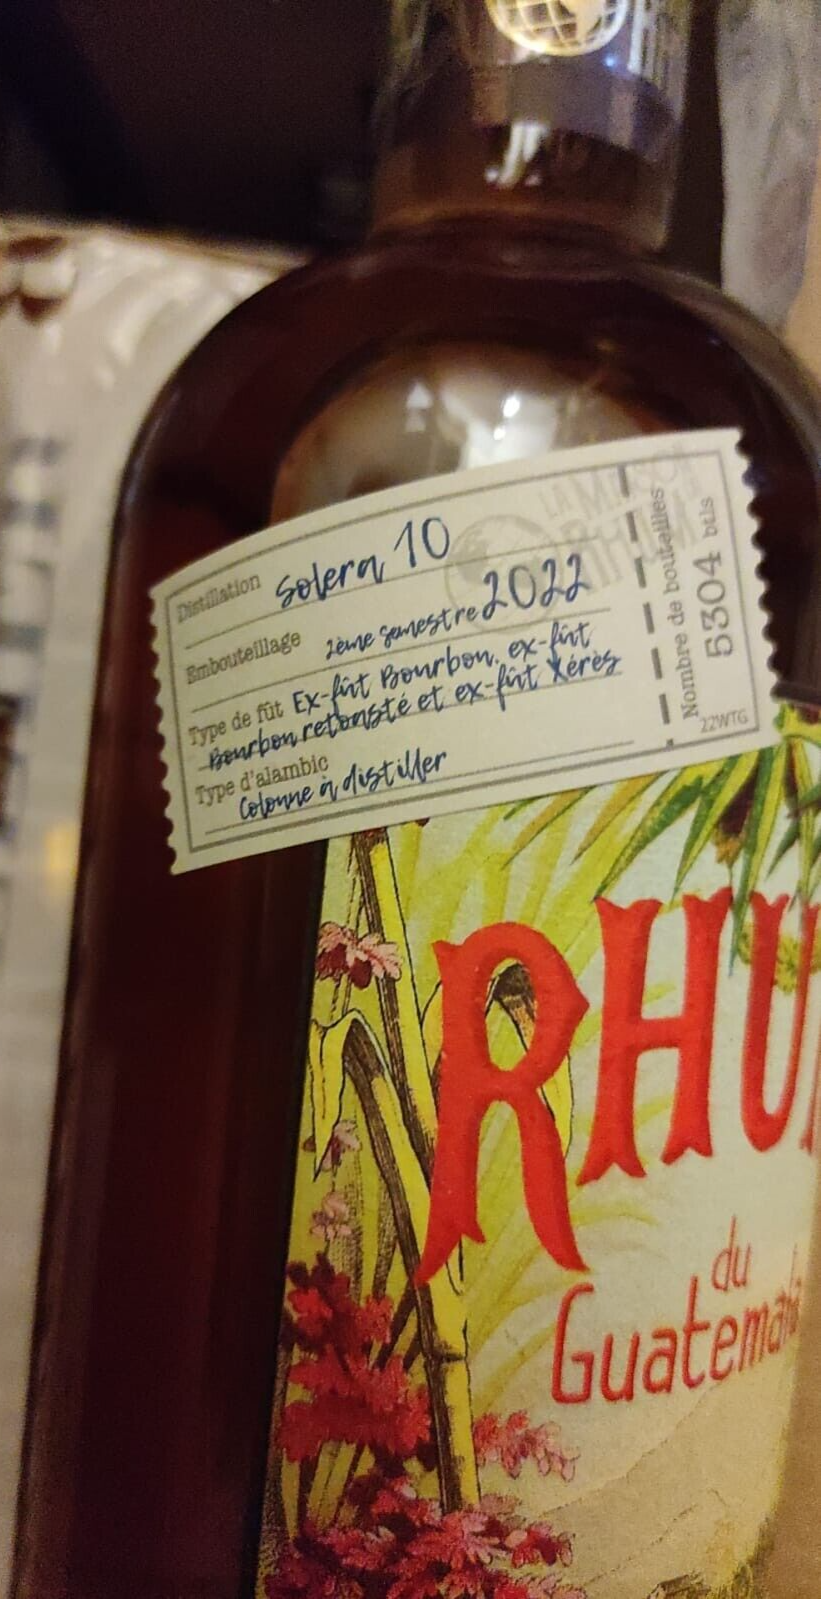 LA MAISON
RHUM
Distillation Solera 10
Embouteillage 2ème semestre 2022
Type de fût Ex-fût Bourbon, ex-fût
Bourbon retoasté et ex-fût Xérès
Type d'alambic
Colonne à distiller
Nombre de bouteilles
5304 btls
22WTG
RHU
du
Guatemala